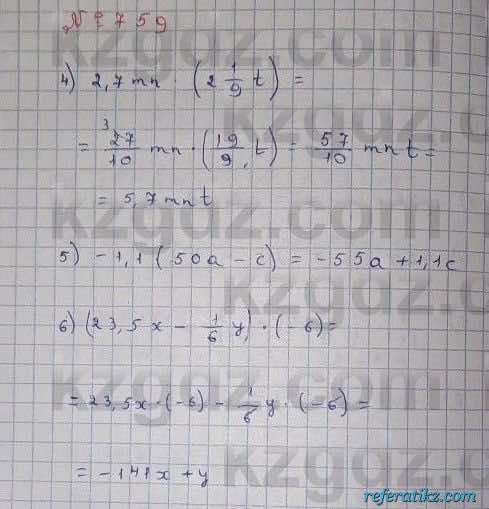 № 759
4) 2,7mn · (2 1/9 t) =
= 27/10 mn · (19/9 t) = 57/10 mn t =
= 5,7mnt
5) -1,1 (50a - c) = -55a + 1,1c
6) (23,5x - 1/6 y) · (-6) =
= 23,5x · (-6) - 1/6 y · (-6) =
= -141x + y
kzgdz.com
referatikz.com